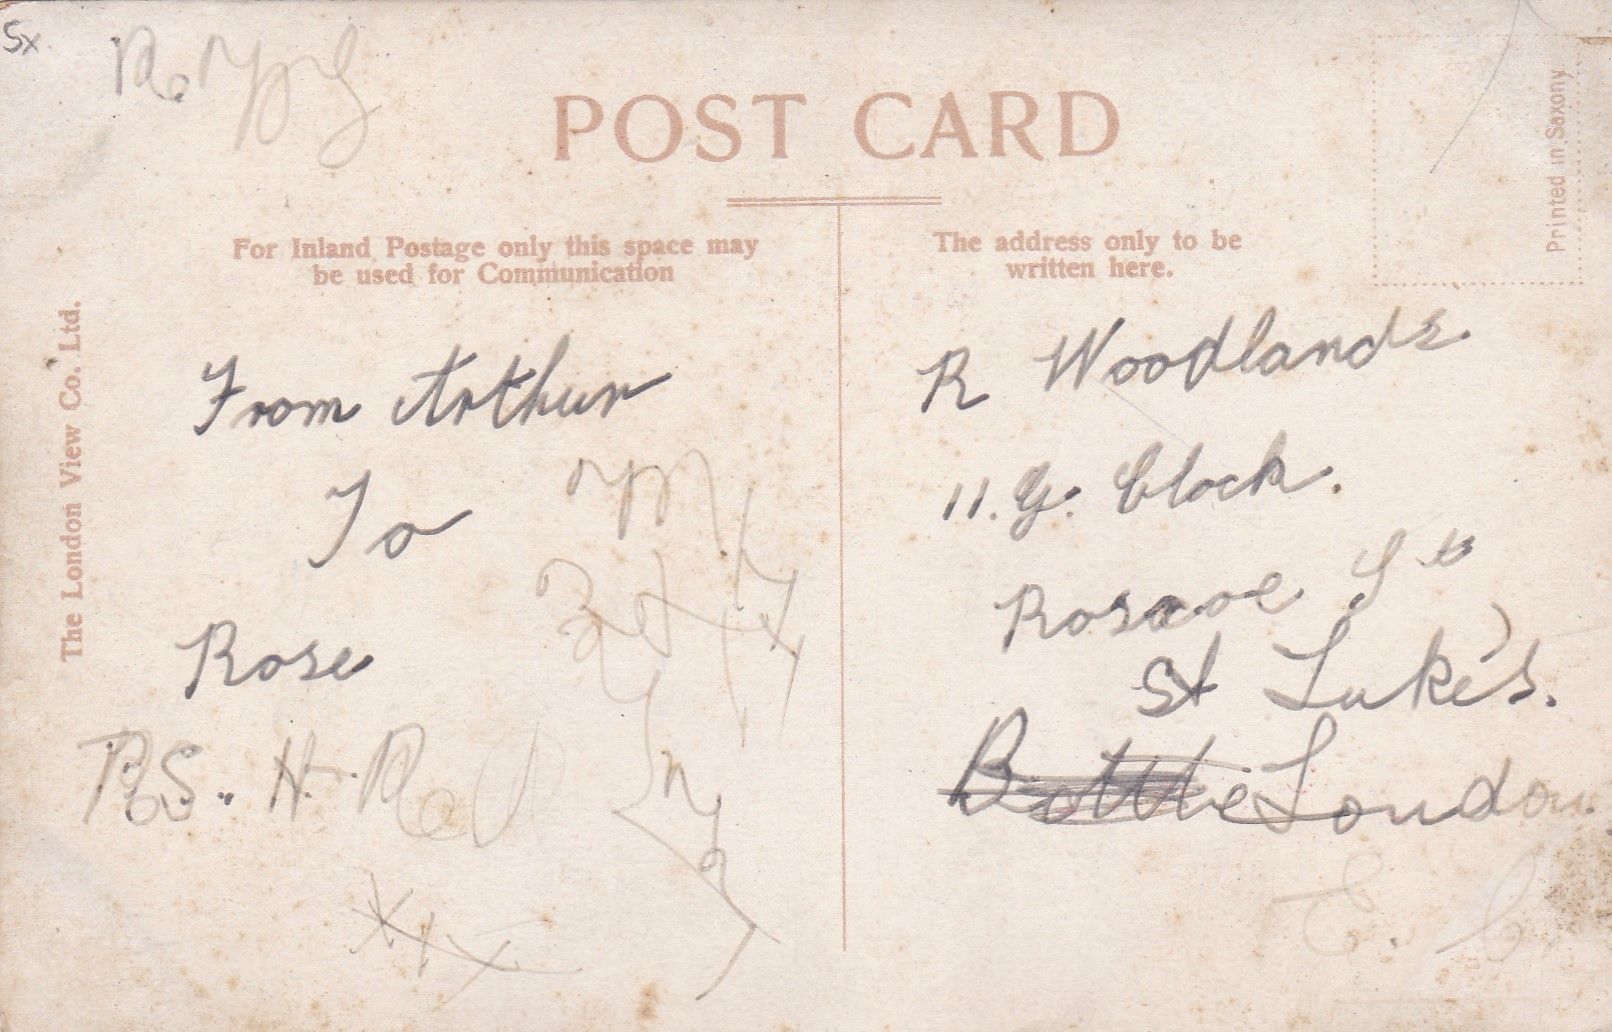 Sx
POST CARD
For Inland Postage only this space may
be used for Communication
The address only to be
written here.
Printed in Saxony
The London View Co. Ltd.
From Arthur
To
Rose
R Woodlands
11. G. Block.
Roscoe St
St Luke's.
London.
E. C.